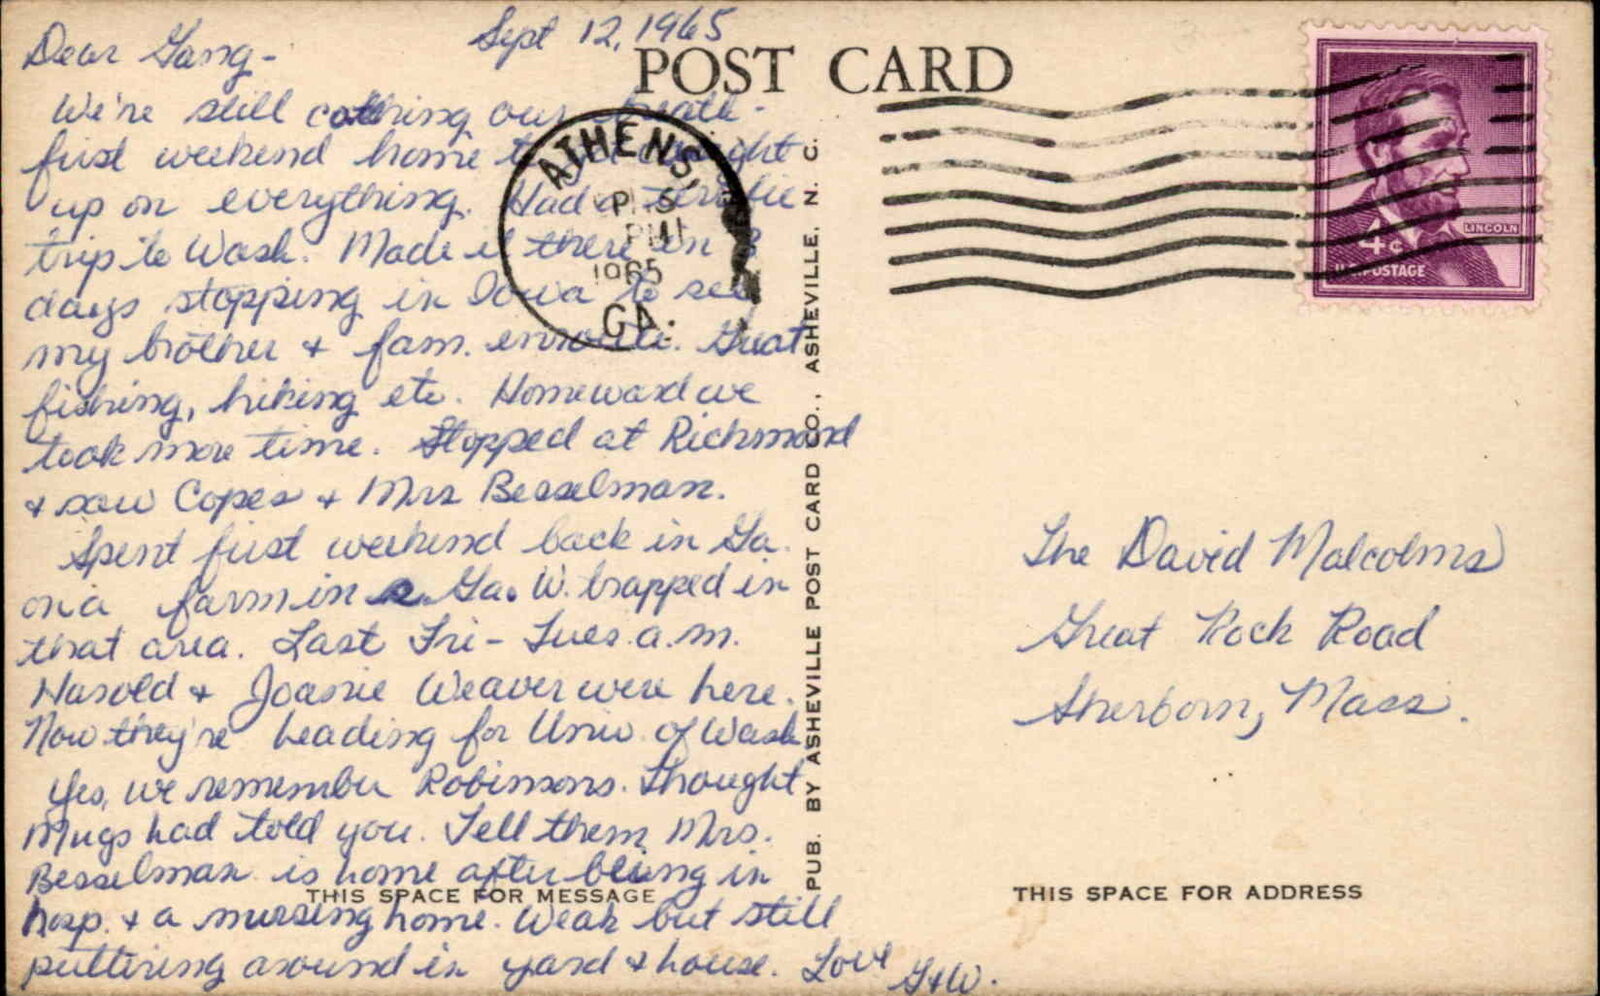 Sept 12, 1965
Dear Gang-
We're still catching our breath -
first weekend home to get caught
up on everything. Had a terrific
trip to Wash. Made it there in 3
days stopping in Iowa to see
my brother & fam. enroute. Great
fishing, hiking etc. Homeward we
took more time. Stopped at Richmond
& saw Copes & Mrs Besselman.
Spent first weekend back in Ga.
on a farm in Ga. W. trapped in
that area. Last Fri - Tues a.m.
Harold & Joanie Weaver were here.
Now they're heading for Univ. of Wash
Yes, we remember Robinsons. Thought
Mugs had told you. Tell them Mrs.
Besselman is home after being in
hosp. & a nursing home. Weak but still
puttering around in yard & house. Love G&W.
POST CARD
ATHENS,
PM
1965
GA.
4¢
LINCOLN
U.S. POSTAGE
PUB. BY ASHEVILLE POST CARD CO., ASHEVILLE, N. C.
The David Malcolms
Great Rock Road
Sherborn, Mass.
THIS SPACE FOR MESSAGE
THIS SPACE FOR ADDRESS